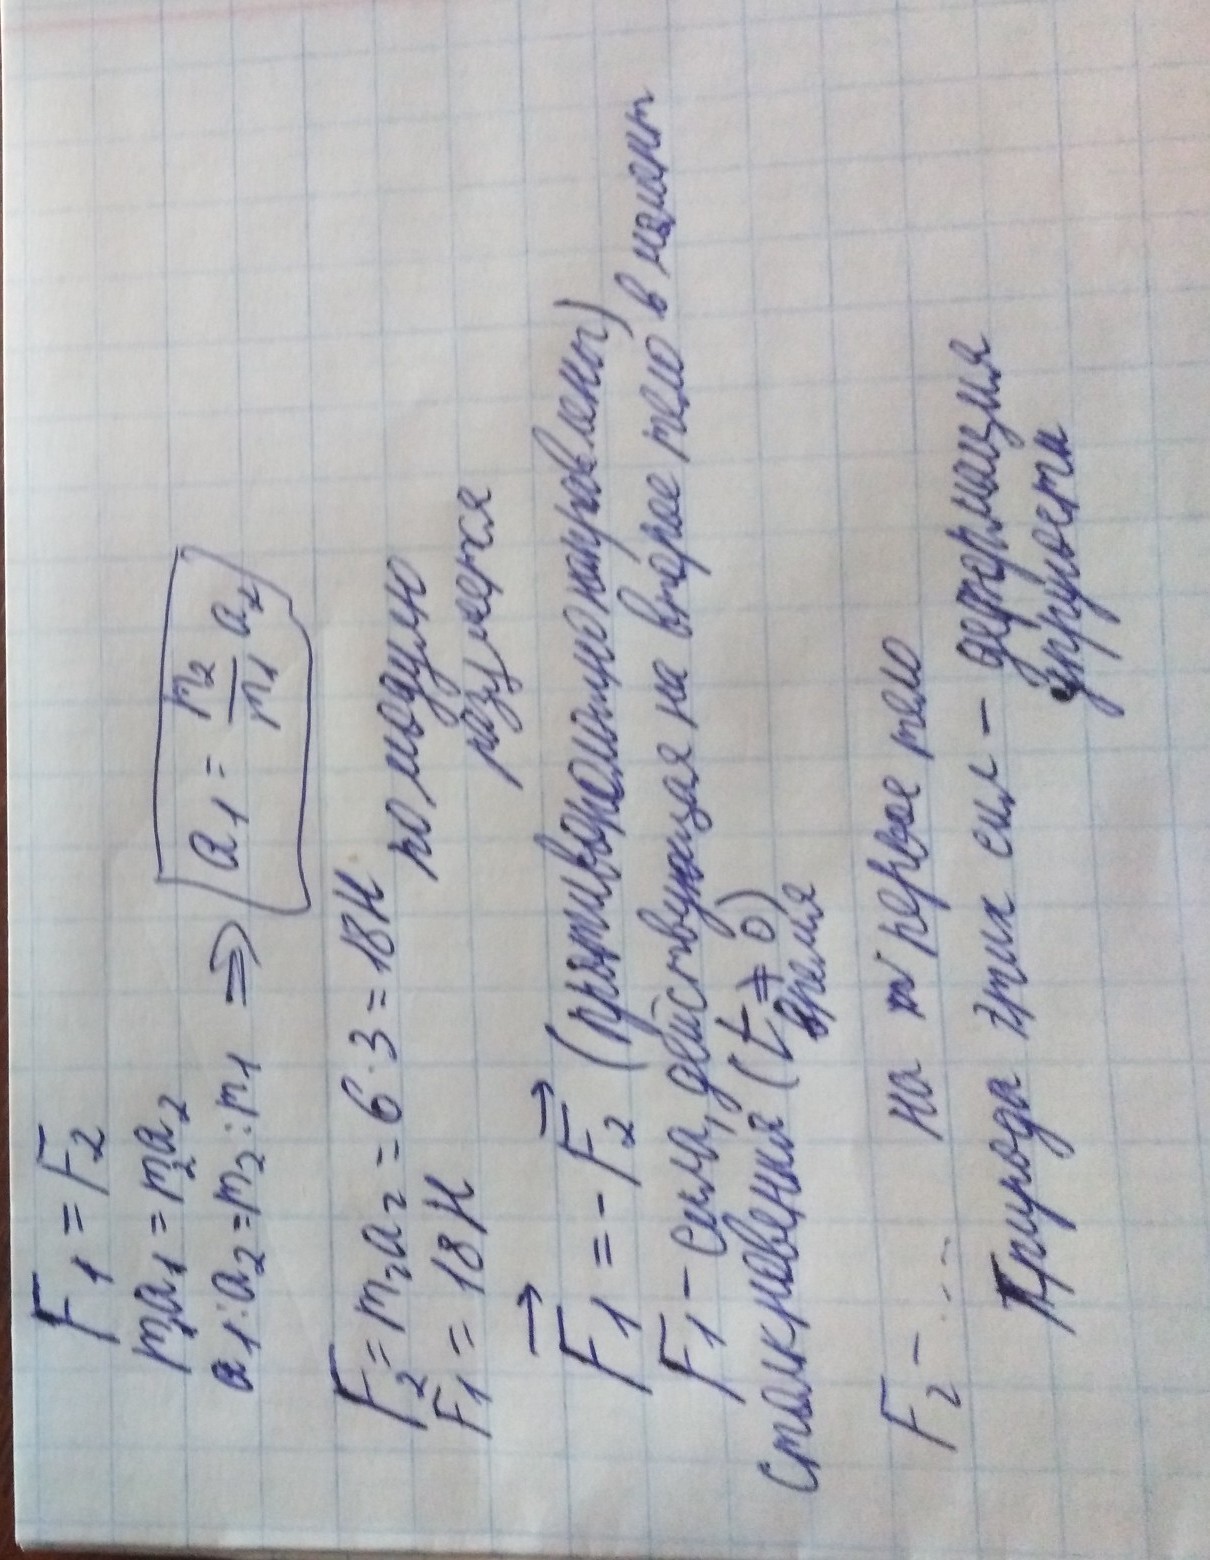 F1 = F2
m1a1 = m2a2
a1:a2 = m2:m1 ⇒ a1 = m2/m1 a2
F2 = m2a2 = 6·3 = 18 Н
F1 = 18 Н по модулю
разумеется
F1 = - F2 (противоположно направлены)
F1 - сила, действующая на второе тело в момент
столкновения (t ≠ 0)
время
F2 - .... на первое тело
Природа этих сил - деформация
упругости